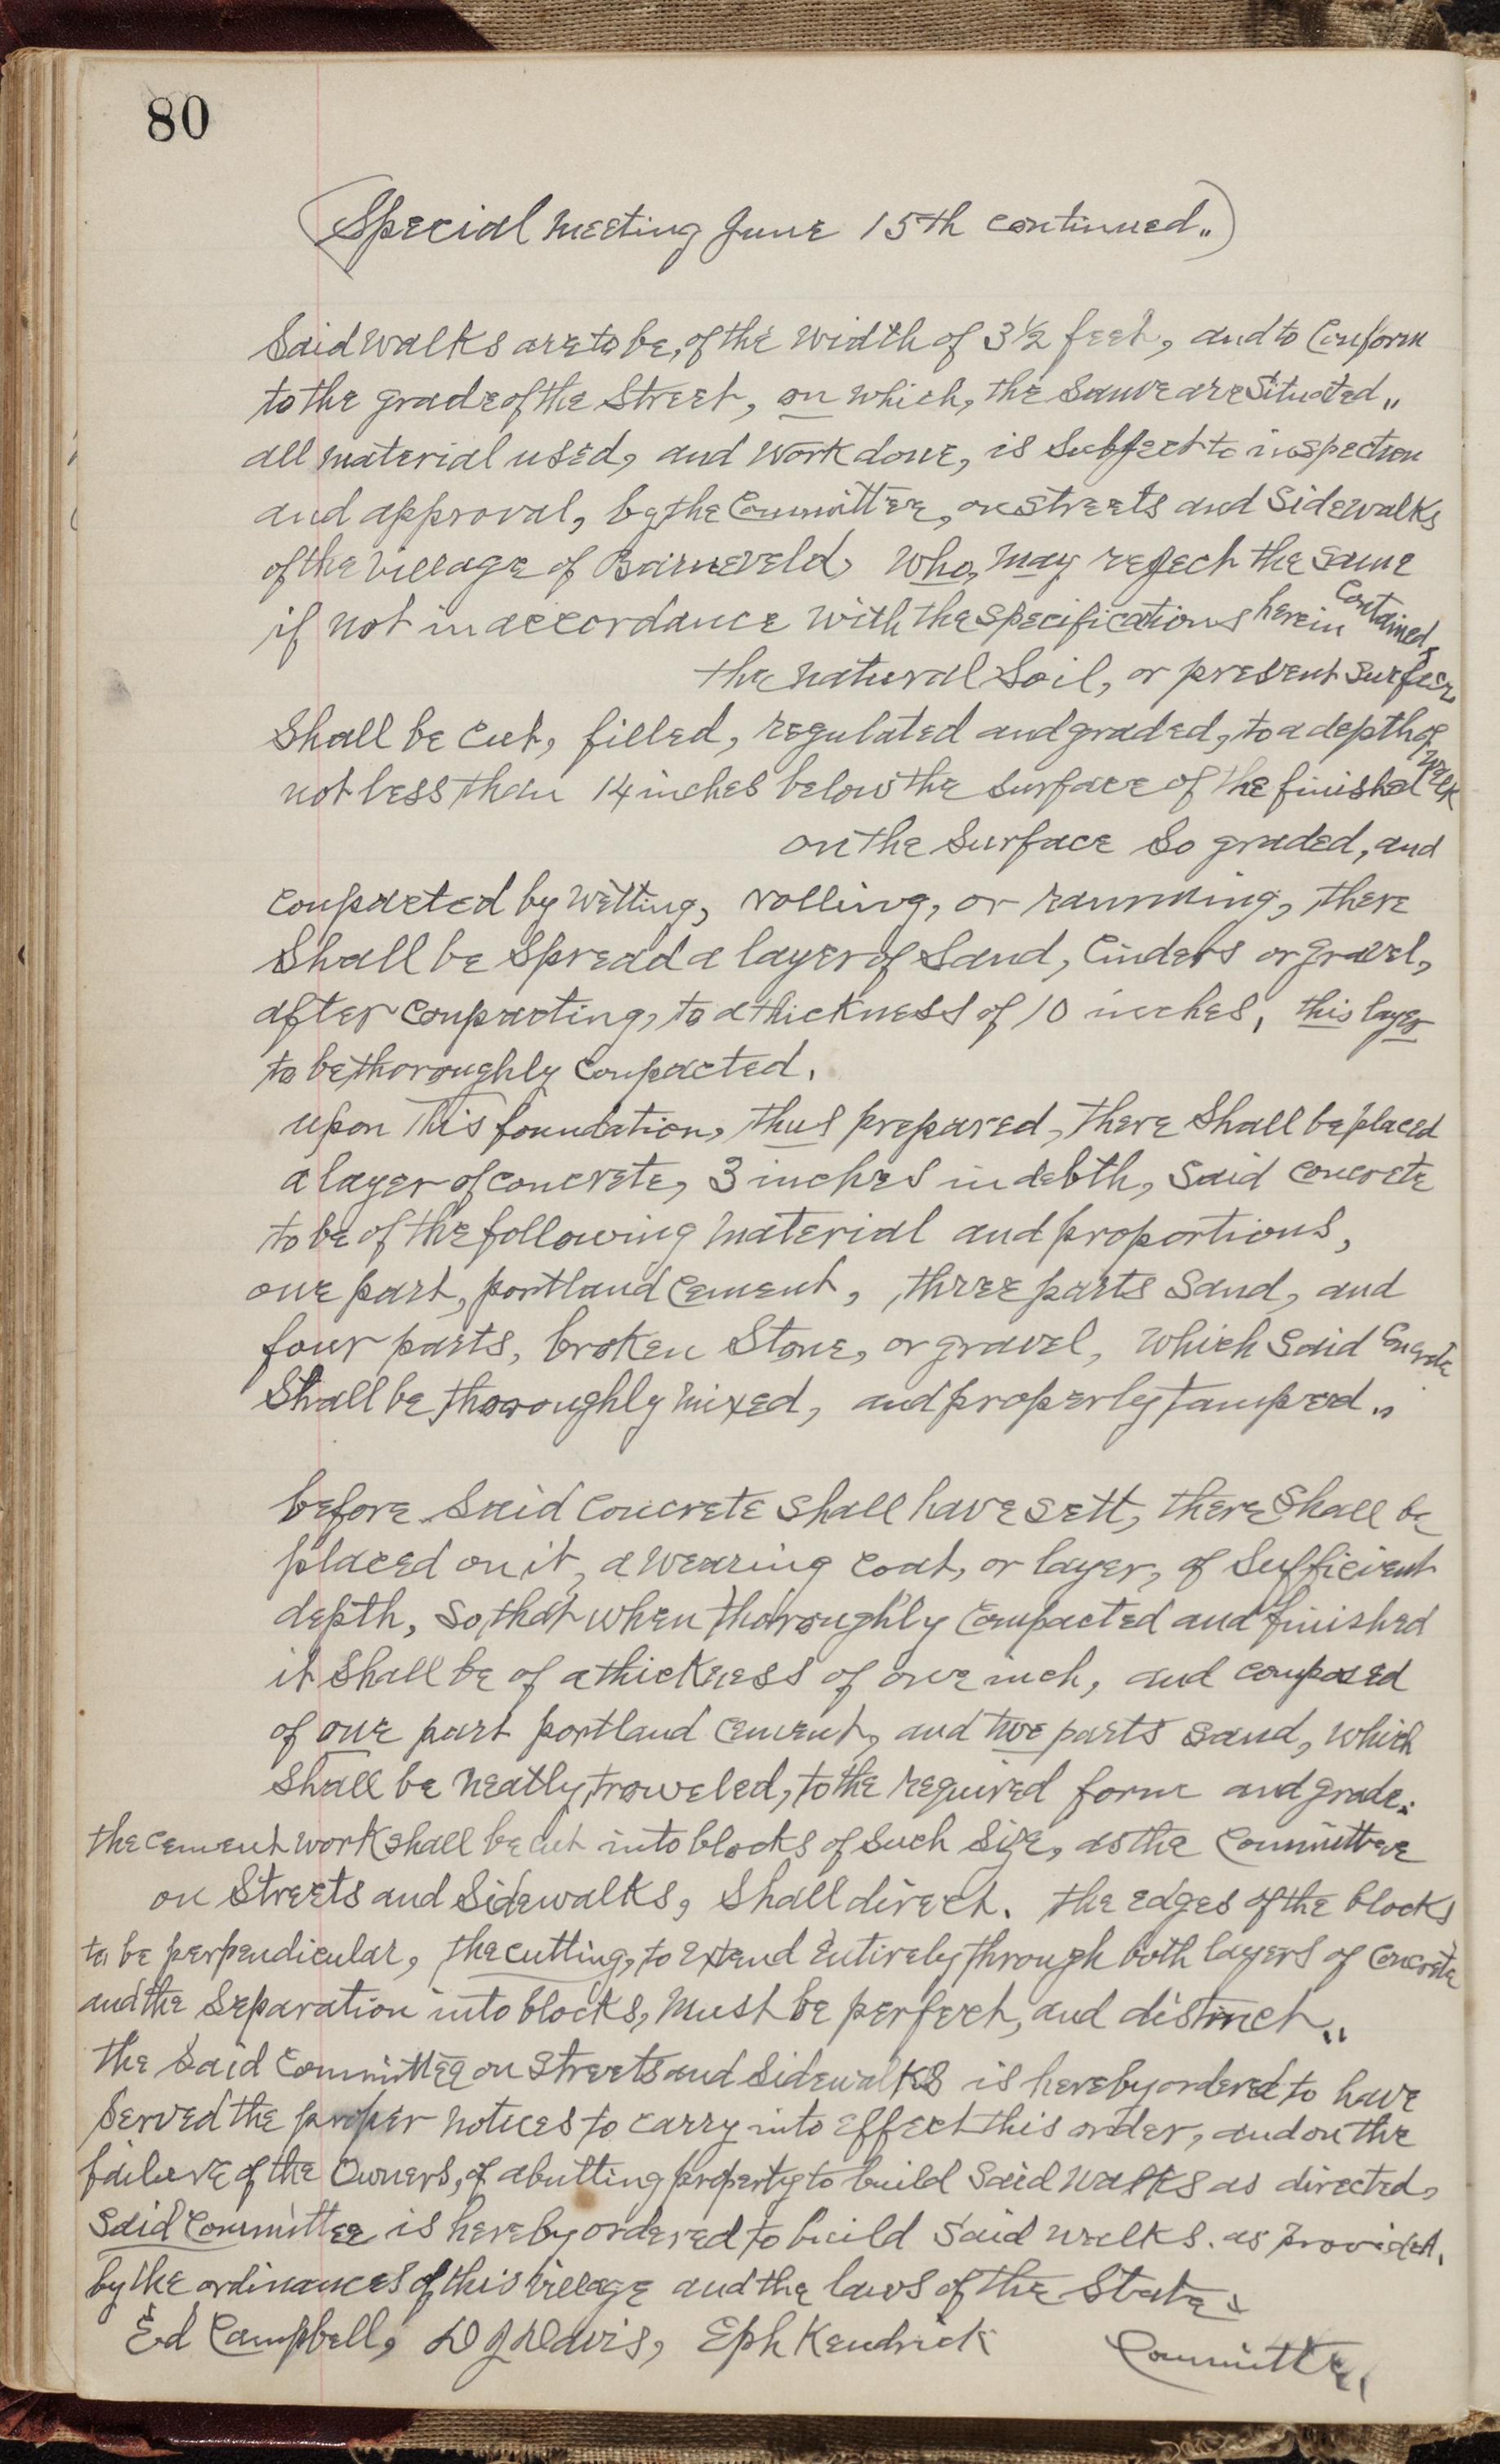 80
(Special meeting June 15th continued.,)
Said walks are to be, of the width of 3½ feet, and to Conform
to the grade of the Street, on which, the Same are Situated,,
all material used, and work done, is Subject to inspection
and approval, by the Committee, on streets and Sidewalks
of the village of Barneveld, Who, may reject the same
if not in accordance with the specifications herein Contained,
the natural Soil, or present Surface,
Shall be Cut, filled, regulated and graded, to a depth of
not less than 14 inches below the surface of the finished walk
on the Surface so graded, and
compacted by Wetting, rolling, or ramming, there
Shall be Spread a layer of Sand, Cinders or gravel,
after Compacting, to a thickness of 10 inches, this layer
to be thoroughly Compacted.
upon This foundation, thus prepared, there Shall be placed
a layer of concrete, 3 inches in debth, Said concrete
to be of the following material and proportions,
one part, portland Cement, three parts Sand, and
four parts, broken Stone, or gravel, which Said Concrete
Shall be thoroughly mixed, and properly tamped.,
before Said Concrete shall have sett, there Shall be
placed on it, a wearing Coat, or layer, of Sufficient
depth, so that when thoroughly Compacted and finished
it Shall be of a thickness of one inch, and composed
of one part portland Cement, and two parts Sand, which
Shall be neatly troweled, to the required form and grade.
the Cement work shall be cut into blocks of Such Size, as the Committee
on Streets and Sidewalks, Shall direct. the edges of the blocks
to be perpendicular, the cutting, to extend Entirely through both layers of Concrete
and the Separation into blocks, must be perfect, and distinct,,
the Said Committee on Streets and Sidewalks is hereby ordered to have
Served the proper notices to carry into effect this order, and on the
failure of the Owners, of abutting property to build Said walks as directed,
Said Committee, is hereby ordered to build Said walks. as Provided.
by the ordinances of this village and the laws of the State.
Ed Campbell, D J Davis, Eph Kendrick Committee,